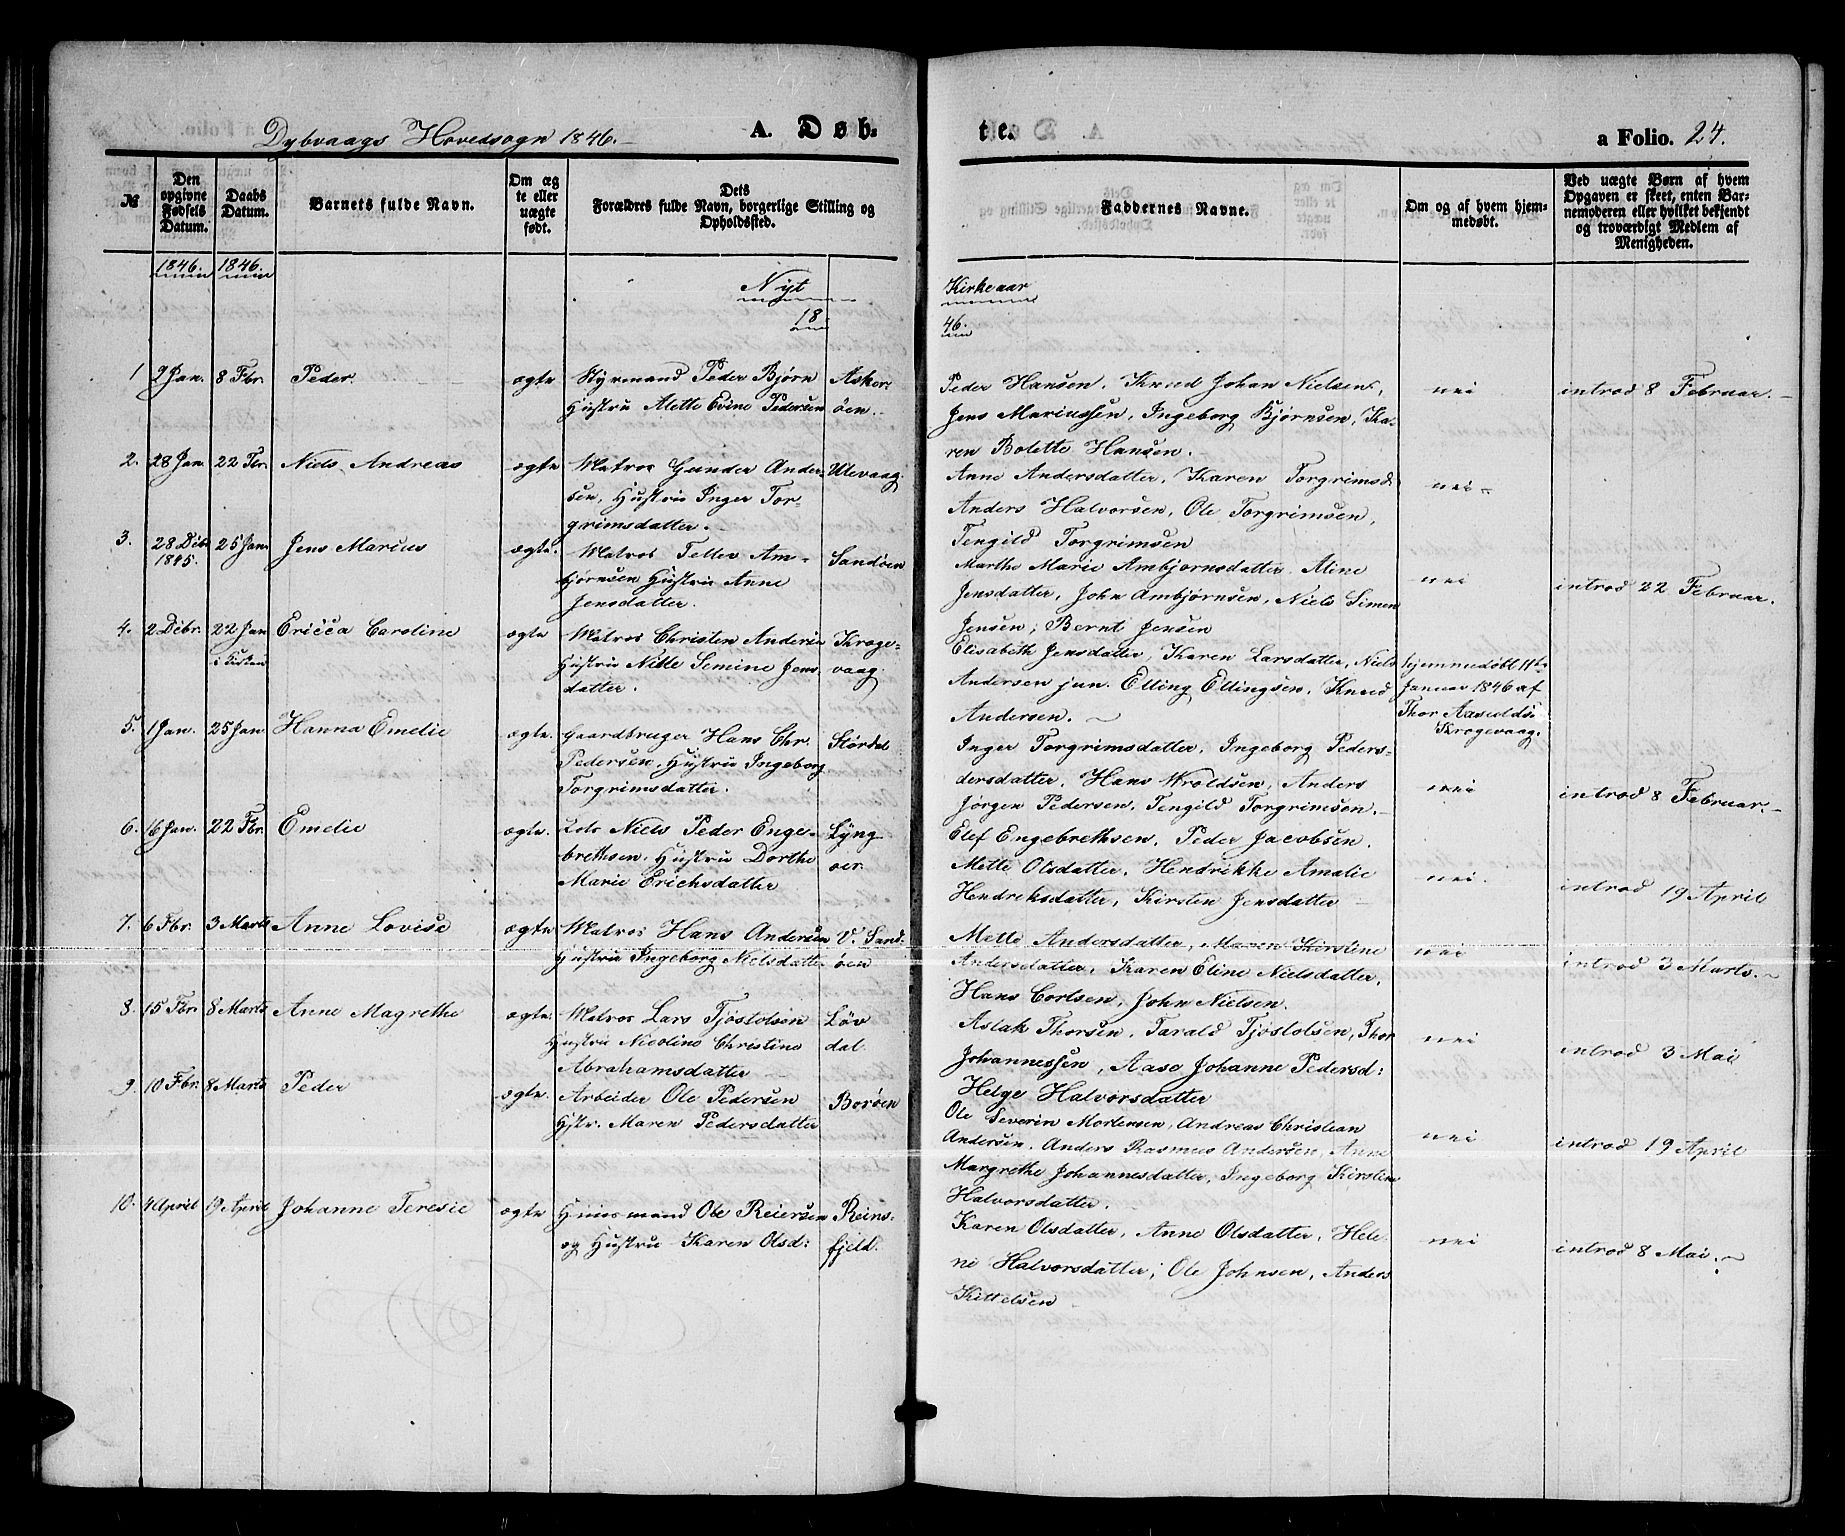 Dybvaags Hovedsogn 1846.
A. Døb-
te.
a Folio. 24.
№
Den opgivne Fødsels Datum.
Daabs Datum.
Barnets fulde Navn.
Om ægte eller uægte født.
Dets Forældres fulde Navn, borgerlige Stilling og Opholdssted.
Faddernes Navne.
Om og af hvem hjemmedøbt.
Ved uægte Børn af hvem Opgaven er skeet, enten Barnemoderen eller hvilket bekjendt og troværdigt Medlem af Menigheden.
1846. 1846.
Nyt Kirkeaar
18 46.
1 2 Jan. 8 Fbr. Peder. ægte Styrmand Peder Bjørn Askerøen.
Hustru Alette Evine Pedersen
Peder Hansen, Knud Johan Nielsen,
Jens Mariussen, Ingeborg Bjørnsen, Karen Bolette Hansen.
nei
introd 8 Februar.
2. 28 Jan. 22 Fbr. Niels Andreas ægte Matros Gunder Andersen, Hustru Inger Torgrimsdatter. Utevaag.
Anne Andersdatter, Karen Torgrimsd.
Anders Halvorsen, Ole Torgrimsen,
Tengild Torgrimsen
nei
3. 28 Debr 1845. 25 Jan. Jens Marius ægte. Matros Tellev Ambjørnsen Hustru Anne Jensdatter. Sandøen
Marthe Marie Ambjornsdatter, Aline
Jensdatter, John Ambjørnsen, Niels Simen
Jensen; Bernt Jensen
nei
introd 22 Februar.
4. 2 Debr. 22 Jan i Kirken Ericca Caroline ægte Matros Christen Andersen
Hustru Nille Semine Jensdatter. Krogevaag
Elisabeth Jensdatter, Karen Larsdatter, Niels
Andersen jun. Elling Ellingsen, Knud
Andersen.
hjemmedøbt 11te
Januar 1846 af
Thor Aasulds.
Krogevaag.
5. 1 Jan. 25 Jan Hanna Emelie ægte. Gaardbruger Hans Chr. Pedersen, Hustru Ingeborg Torgrimsdatter. Størdal
Inger Torgrimsdatter, Ingeborg Peders-
dersdatter, Hans Wroldsen, Anders
Jørgen Pedersen, Tengild Torgrimsen.
nei
introd 8 Februar.
6. 16 Jan. 22 Fbr. Emelie ægte. Lods Niels Peder Engebrethsen, Hustru Dorthe Marie Erichsdatter Lyngøer.
Elef Engebrethsen, Peder Jacobsen,
Mette Olsdatter, Hendrikke Amalie
Hendreksdatter, Kirsten Jensdatter
nei.
introd 19 April
7. 6 Fbr. 3 Marts Anne Lovise ægte Matros Hans Andersen
Hustru Ingeborg Nielsdatter V. Sandøen
Mette Andersdatter, Maren Kirstine
Andersdatter, Karen Eline Nielsdatter,
Hans Corlsen, John Nielsen.
nei
introd 3 Marts.
8. 15 Fbr. 8 Marts Anne Magrethe ægte. Matros Lars Tjøstolsen
Hustru Nicoline Christine
Abrahamsdatter Løvdal.
Aslak Thorsen, Tarald Tjøstolsen, Thor
Johannessen, Aase Johanne Pedersd:
Helge Halvorsdatter
nei
introd 3 Mai
9. 10 Fbr. 8 Marts Peder ægte. Arbeider Ole Pedersen
Hstr. Maren Pedersdatter Borøen
Ole Severin Mortensen, Andreas Christean
Andersen, Anders Rasmus Andersen, Anne
Margrethe Johannesdatter, Ingeborg Kirstine
Halvorsdatter.
nei
introd 19 April
10. 4 April 19 April Johanne Teresie ægte Huusmand Ole Reiersen
og Hustru Karen Olsd: Reinsfjeld.
Karen Olsdatter, Anne Olsdatter, Helene Halvorsdatter; Ole Johnsen, Anders
Kittelsen
nei
introd 8 Mai.